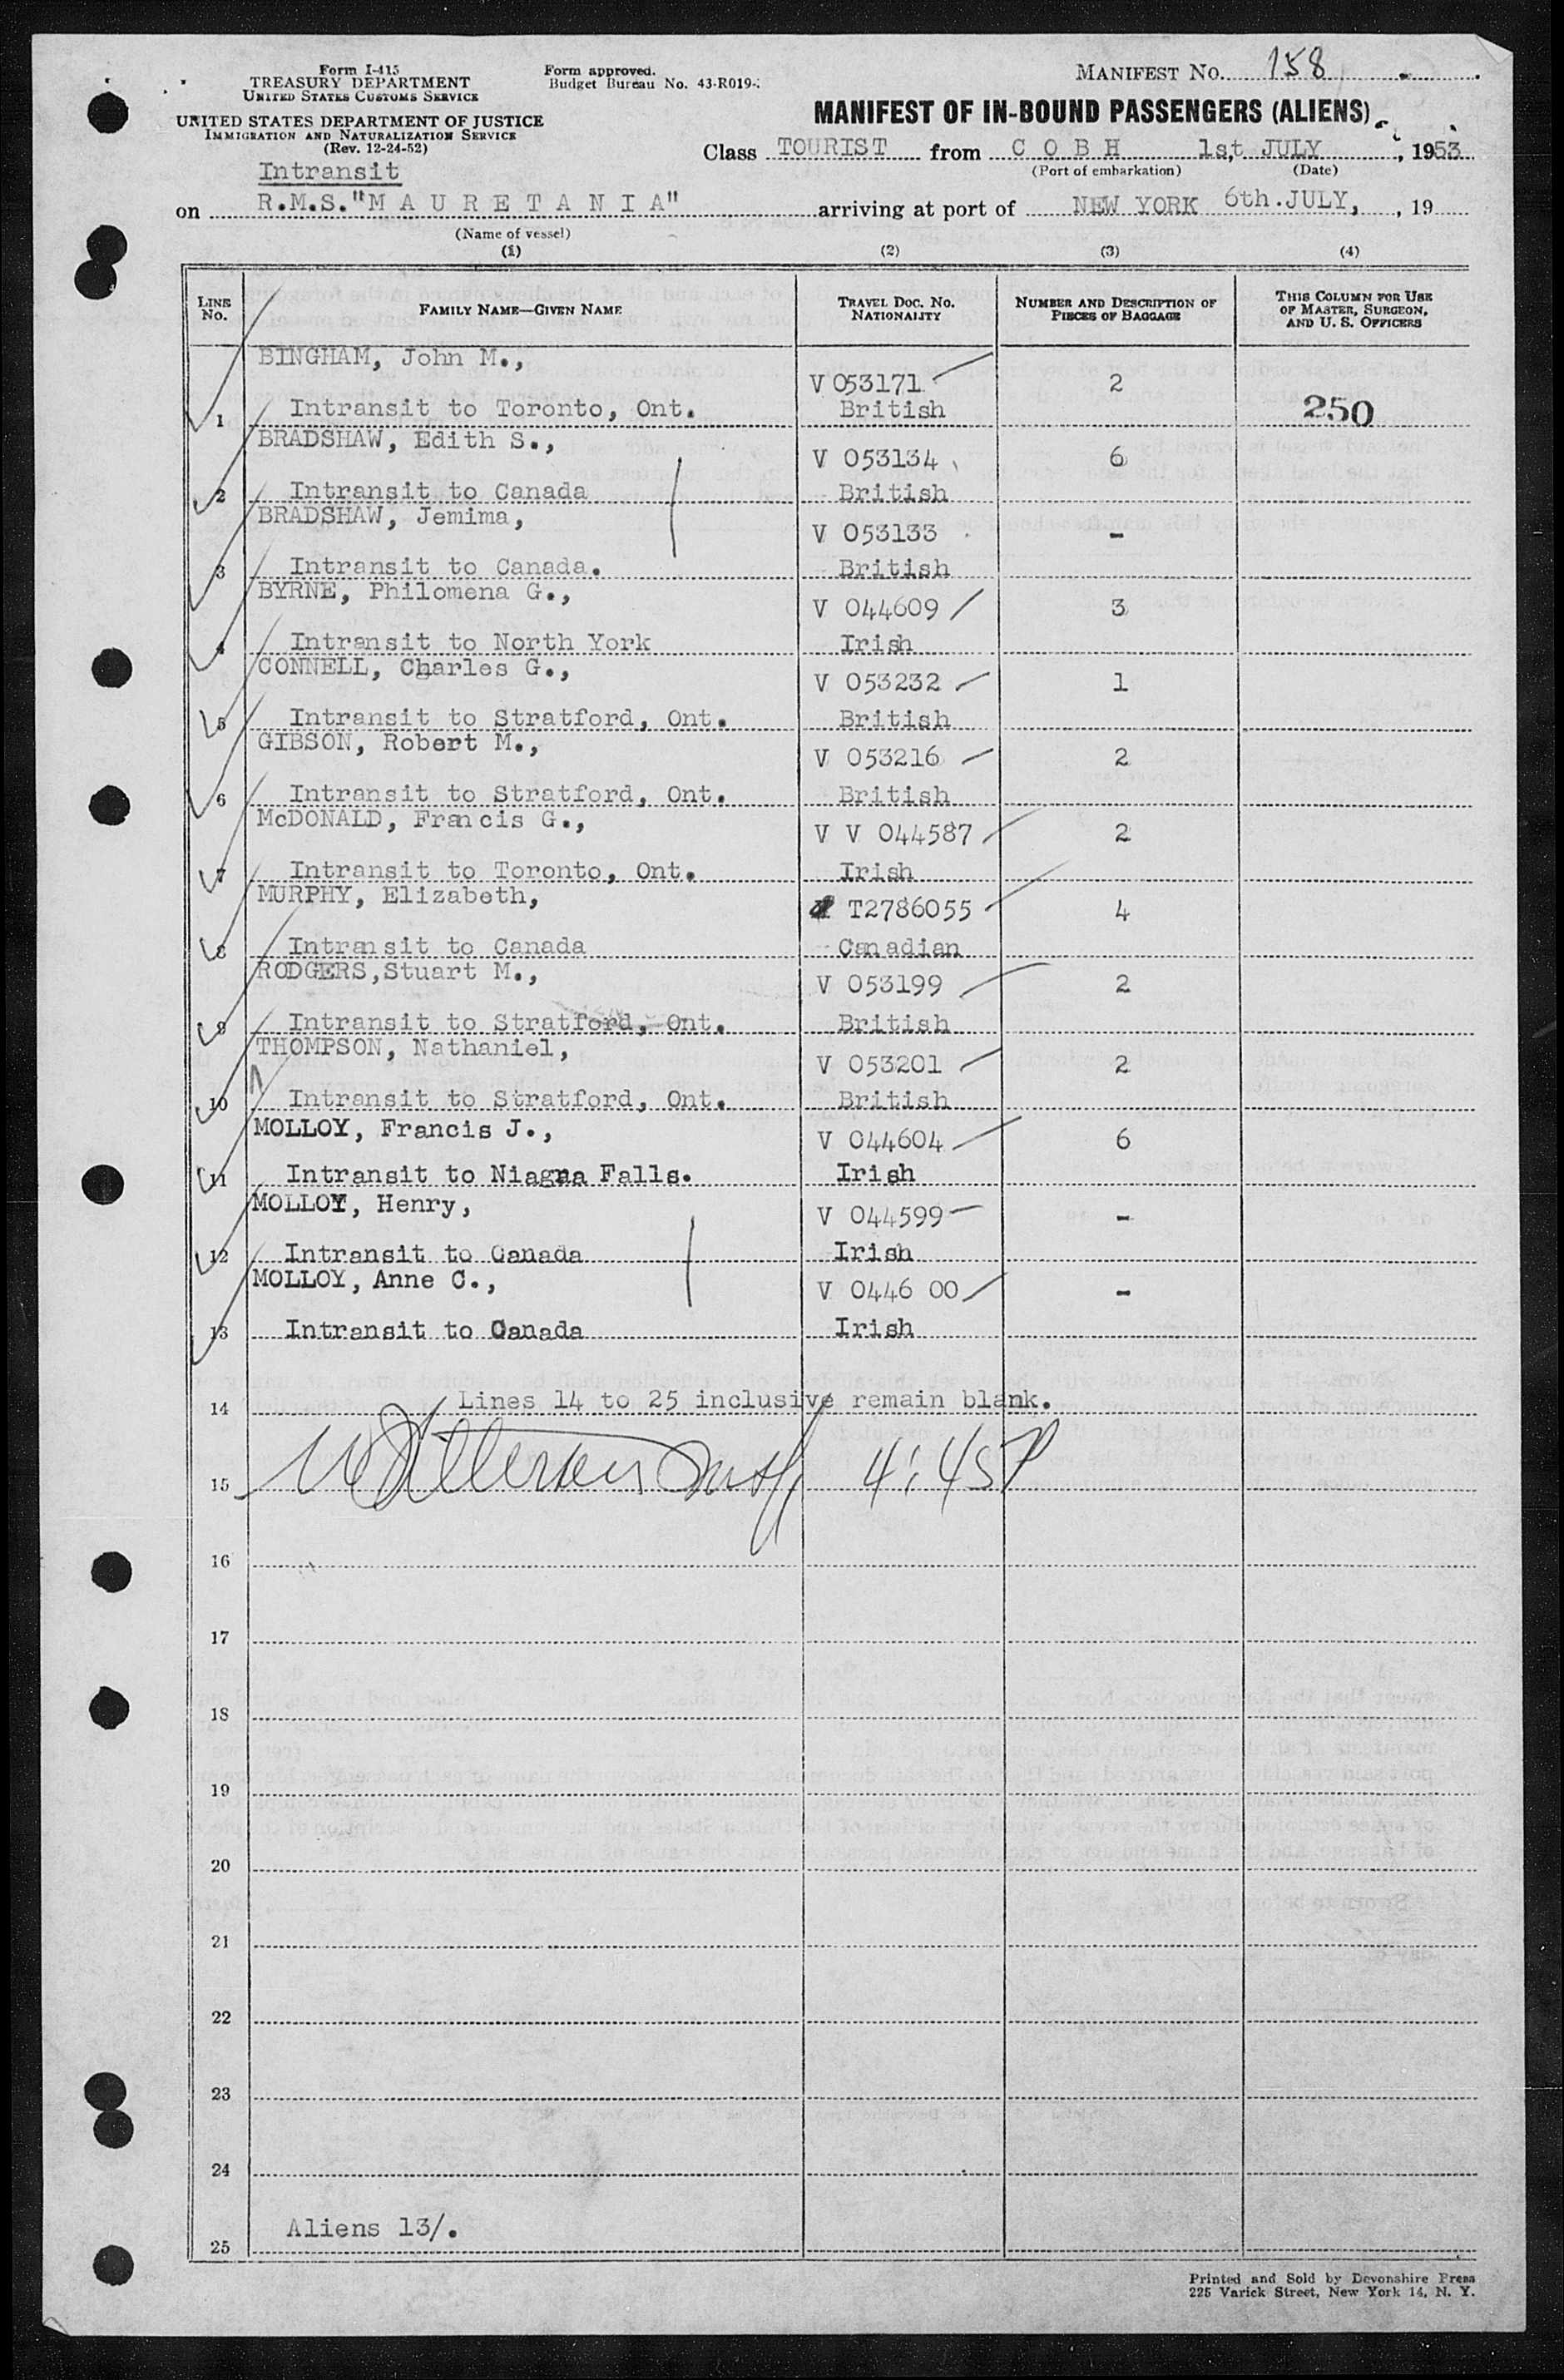 Form I-415
TREASURY DEPARTMENT
UNITED STATES CUSTOMS SERVICE
UNITED STATES DEPARTMENT OF JUSTICE
IMMIGRATION AND NATURALIZATION SERVICE
(Rev. 12-24-52)
Form approved.
Budget Bureau No. 43-R019-
MANIFEST NO. 158
MANIFEST OF IN-BOUND PASSENGERS (ALIENS)
Class TOURIST from C O B H 1st, JULY, 1953
(Port of embarkation) (Date)
Intransit
on R.M.S."M A U R E T A N I A" arriving at port of NEW YORK 6th.JULY, , 19
(Name of vessel)
(1) (2) (3) (4)
LINE NO. FAMILY NAME—GIVEN NAME TRAVEL DOC. NO. NATIONALITY NUMBER AND DESCRIPTION OF PIECES OF BAGGAGE THIS COLUMN FOR USE OF MASTER, SURGEON, AND U. S. OFFICERS
BINGHAM, John M., V 053171 2
1 Intransit to Toronto, Ont. British 250
BRADSHAW, Edith S., V 053134 6
2 Intransit to Canada British
BRADSHAW, Jemima, V 053133 -
3 Intransit to Canada. British
BYRNE, Philomena G., V 044609 3
4 Intransit to North York Irish
CONNELL, Charles G., V 053232 1
5 Intransit to Stratford, Ont. British
GIBSON, Robert M., V 053216 2
6 Intransit to Stratford, Ont. British
McDONALD, Francis G., V V 044587 2
7 Intransit to Toronto, Ont. Irish
MURPHY, Elizabeth, T2786055 4
8 Intransit to Canada Canadian
RODGERS,Stuart M., V 053199 2
9 Intransit to Stratford, Ont. British
THOMPSON, Nathaniel, V 053201 2
10 Intransit to Stratford, Ont. British
MOLLOY, Francis J., V 044604 6
11 Intransit to Niagra Falls. Irish
MOLLOY, Henry, V 044599 -
12 Intransit to Canada Irish
MOLLOY, Anne C., V 0446 00 -
13 Intransit to Canada Irish
14 Lines 14 to 25 inclusive remain blank.
15 4:45P
16
17
18
19
20
21
22
23
24
25 Aliens 13/.
Printed and Sold by Devonshire Press
225 Varick Street, New York 14, N. Y.